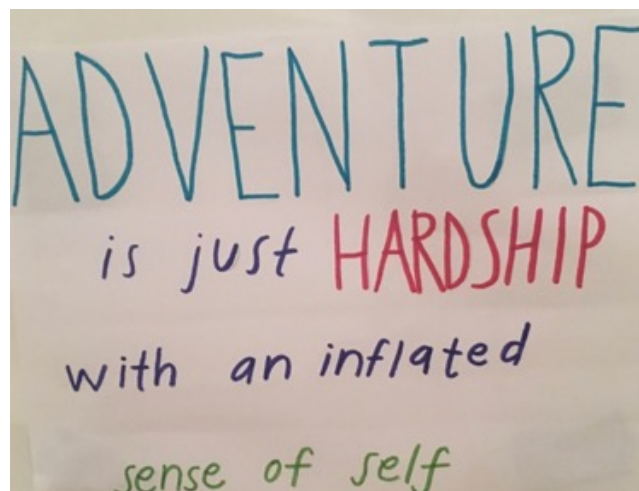 ADVENTURE
is just HARDSHIP
with an inflated
sense of self